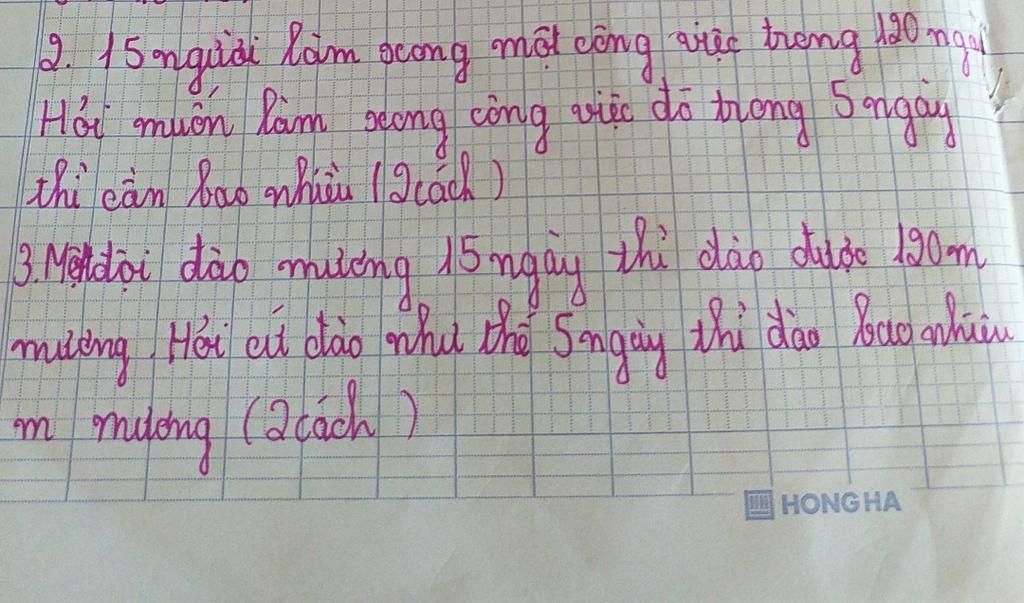 2. 15 người làm xong một công việc trong 120 ngày
Hỏi muốn làm xong công việc đó trong 5 ngày
thì cần bao nhiêu (2 cách)
3. Một đội đào mương 15 ngày thì đào được 120m
mương. Hỏi cứ đào như thế 5 ngày thì đào bao nhiêu
m mương (2 cách)
HONG HA